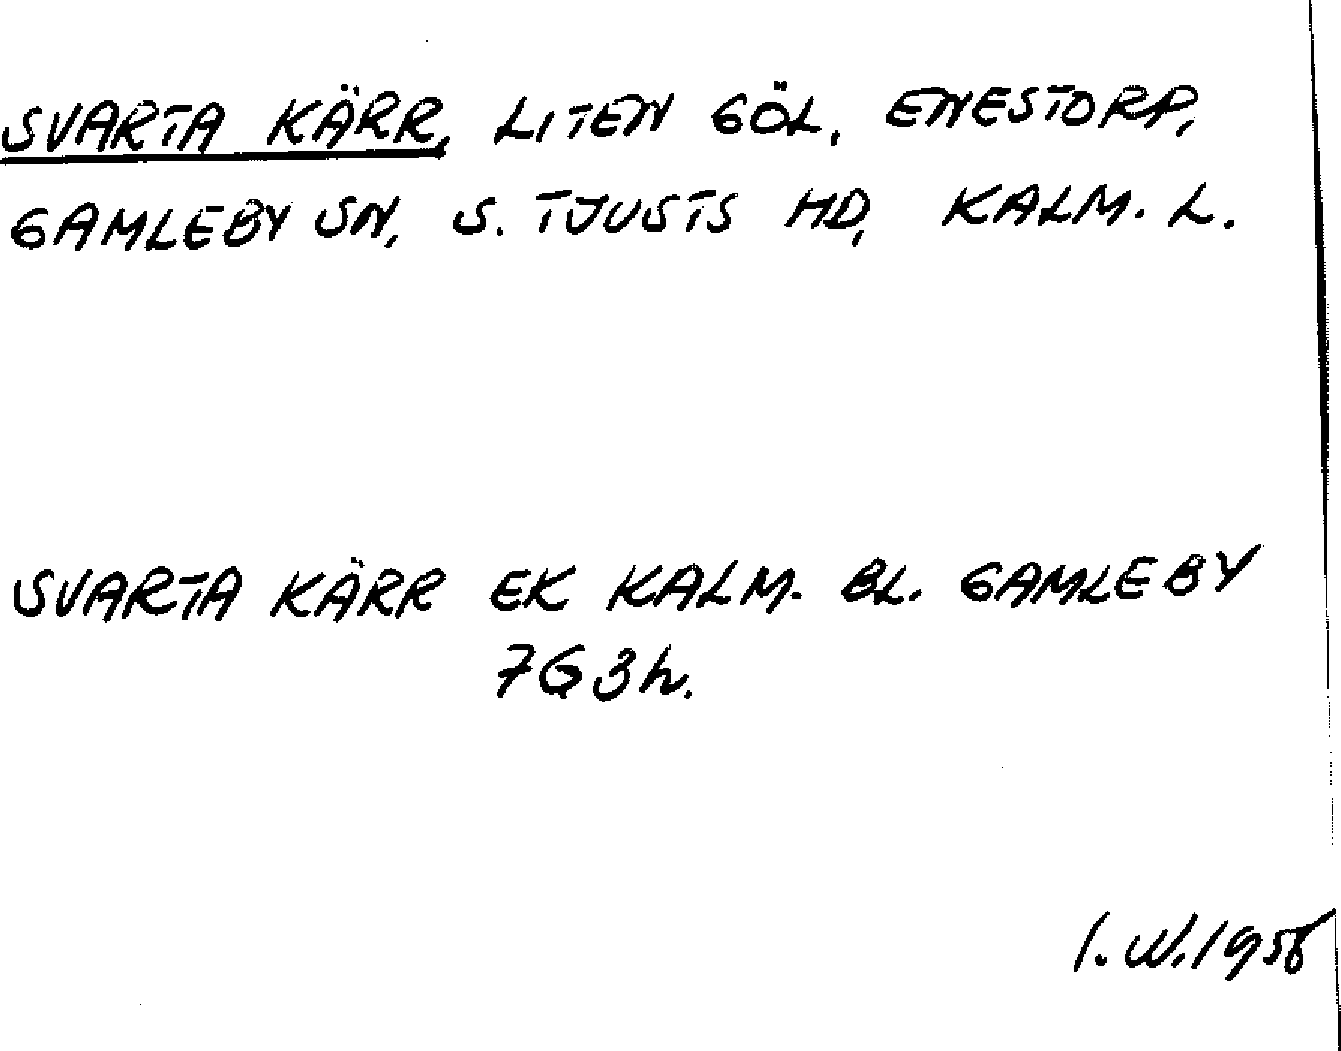 SVARTA KÄRR, LITEN GÖL, ENESTORP,
GAMLEBY SN, S. TJUSTS HD, KALM. L.
SVARTA KÄRR EK KALM. BL. GAMLEBY
7G3h.
I.W.1956